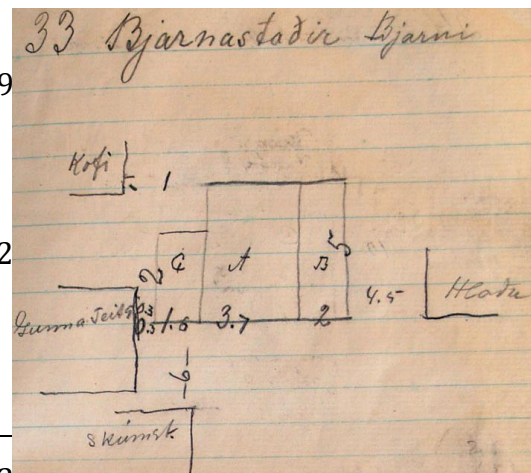 33 Bjarnastaðir Bjarni
9
Kofi
1
2
C A B 5
2
4.5 Hlaða
Gunna Teits
1.8 3.7 2
6
Skúmst.